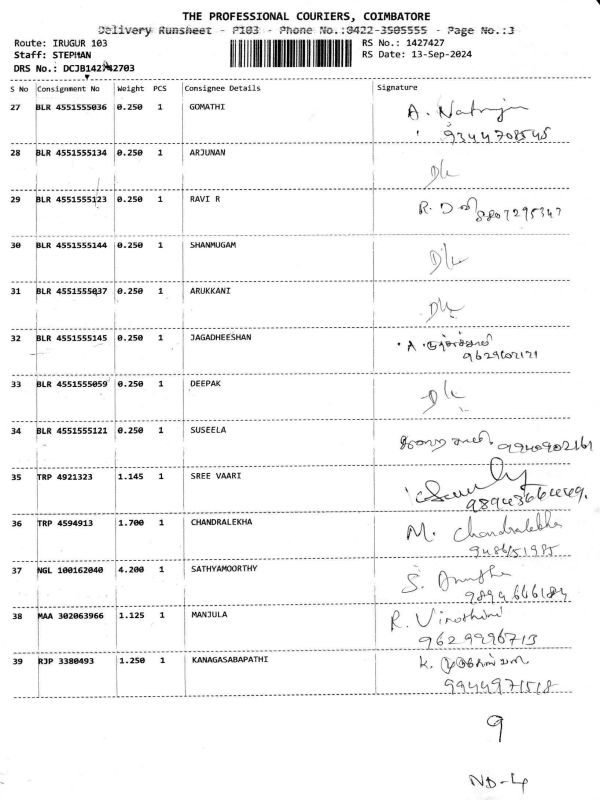 THE PROFESSIONAL COURIERS, COIMBATORE
Delivery Runsheet - P103 - Phone No.:0422-3505555 - Page No.:3
Route: IRUGUR 103
RS No.: 1427427
Staff: STEPHAN
RS Date: 13-Sep-2024
DRS No.: DCJB142742703
S No Consignment No Weight PCS Consignee Details Signature
27 BLR 4551555036 0.250 1 GOMATHI A. Natrajan
9344708545
28 BLR 4551555134 0.250 1 ARJUNAN D/L
29 BLR 4551555123 0.250 1 RAVI R R.
30 BLR 4551555144 0.250 1 SHANMUGAM D/L
31 BLR 4551555037 0.250 1 ARUKKANI D/L
32 BLR 4551555145 0.250 1 JAGADHEESHAN A
33 BLR 4551555059 0.250 1 DEEPAK D/L
34 BLR 4551555121 0.250 1 SUSEELA 9940902161
35 TRP 4921323 1.145 1 SREE VAARI
36 TRP 4594913 1.700 1 CHANDRALEKHA M. Chandralekha
9486151985
37 NGL 100162040 4.200 1 SATHYAMOORTHY S. Anutha
9894666184
38 MAA 302063966 1.125 1 MANJULA R. Vinothini
9629996713
39 RJP 3380493 1.250 1 KANAGASABAPATHI K.
9944971518
9
ND-4